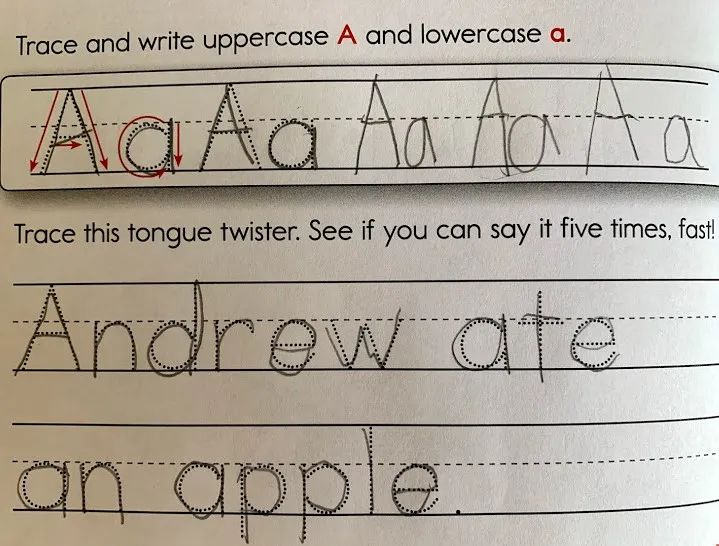 Trace and write uppercase A and lowercase a.
A a A a A a A a A a
Trace this tongue twister. See if you can say it five times, fast!
Andrew ate
an apple.